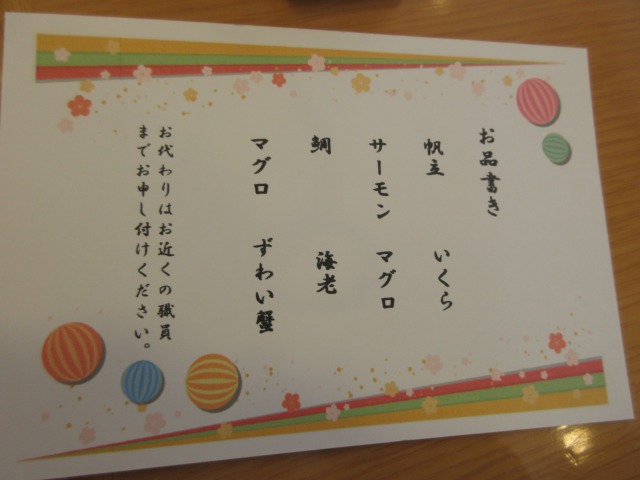 お品書き
帆立 いくら
サーモン マグロ
鯛 海老
マグロ ずわい蟹
お代わりはお近くの職員
までお申し付けください。